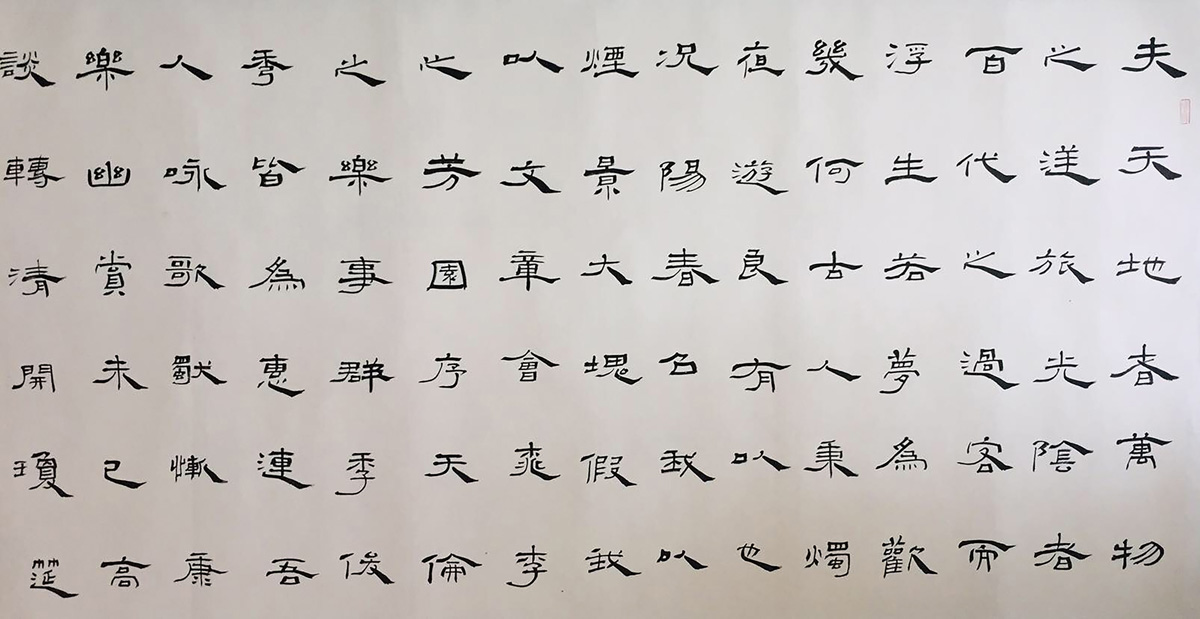 夫天地者萬物
之逆旅光陰者
百代之過客而
浮生若夢為歡
幾何古人秉燭
夜遊良有以也
況陽春召我以
煙景大塊假我
以文章會桃李
之芳園序天倫
之樂事群季俊
秀皆為惠連吾
人咏歌獨慚康
樂幽賞未已高
談轉清開瓊筵